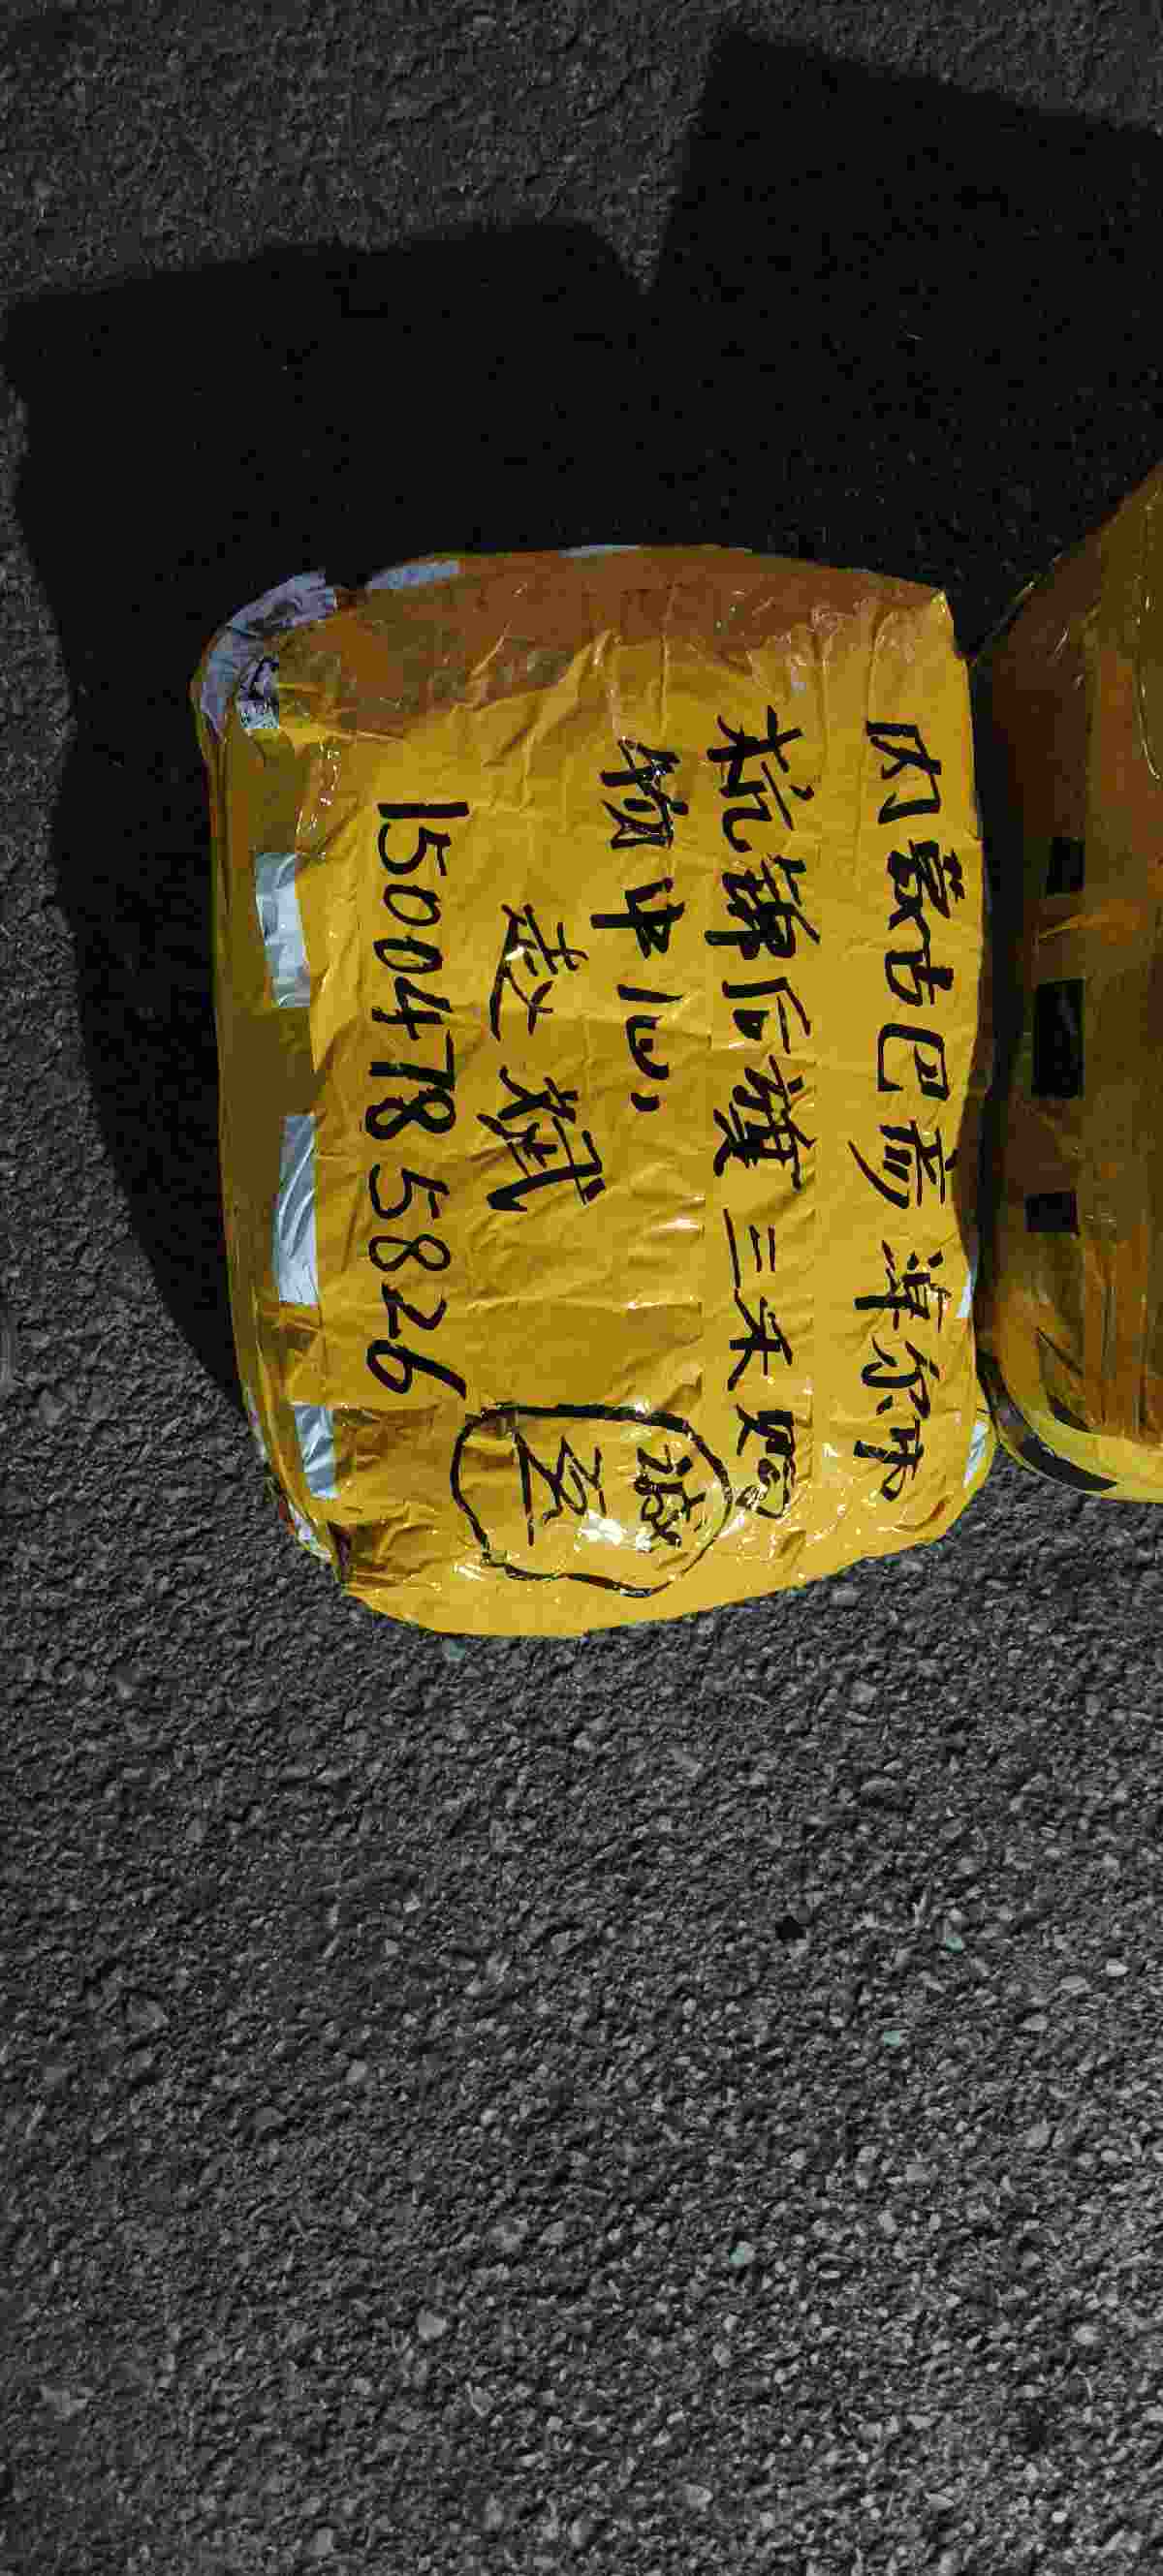 内蒙古巴彦淖尔市
杭锦后旗三乐购
物中心
赵斌
15004785826
诚至